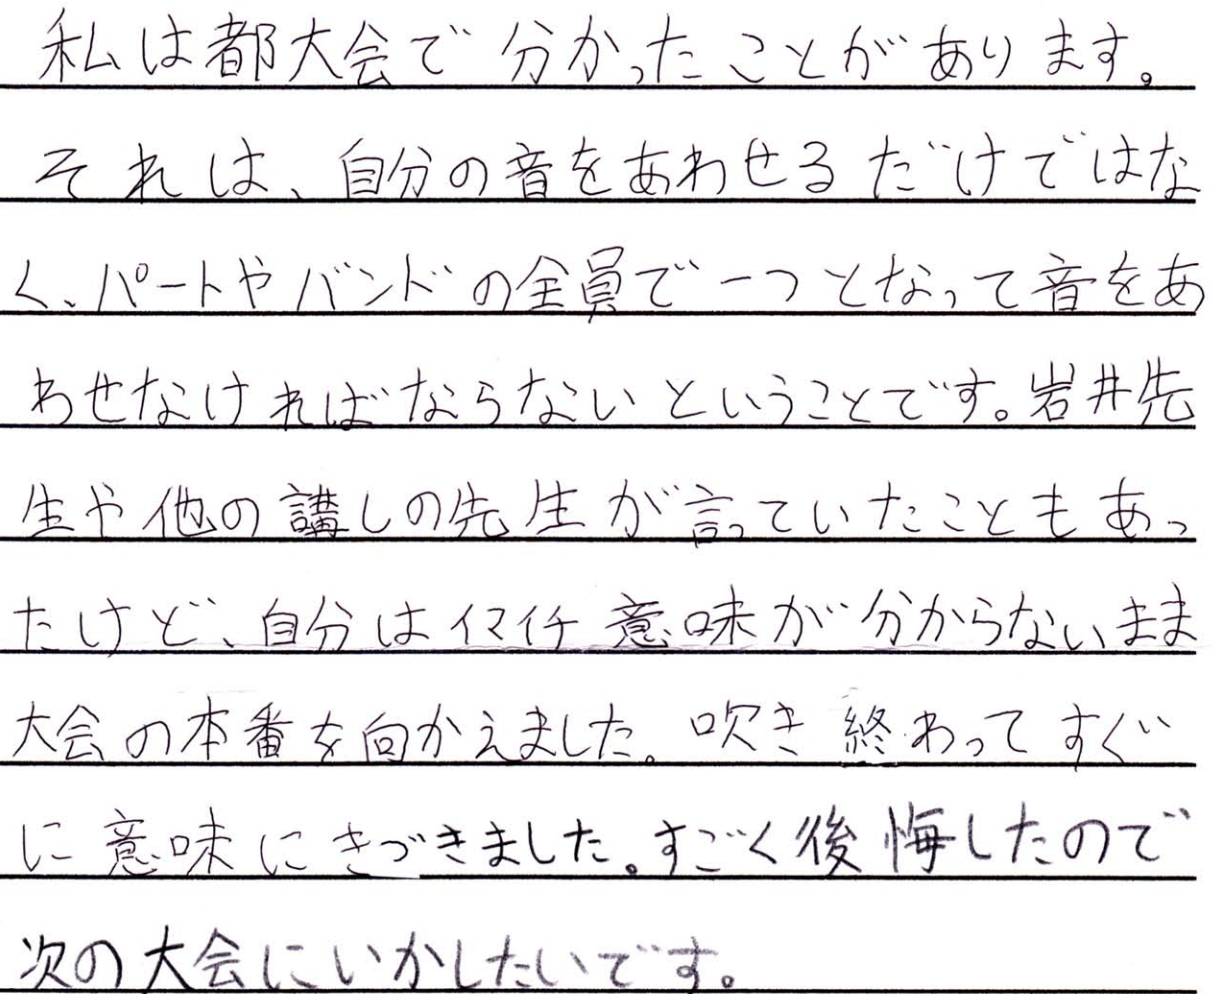 私は都大会で分かったことがあります。
それは、自分の音をあわせるだけではな
く、パートやバンドの全員で一つとなって音をあ
わせなければならないということです。岩井先
生や他の講しの先生が言っていたこともあっ
たけど、自分はイマイチ意味が分からないまま
大会の本番を向かえました。吹き終わってすぐ
に意味にきづきました。すごく後悔したので
次の大会にいかしたいです。